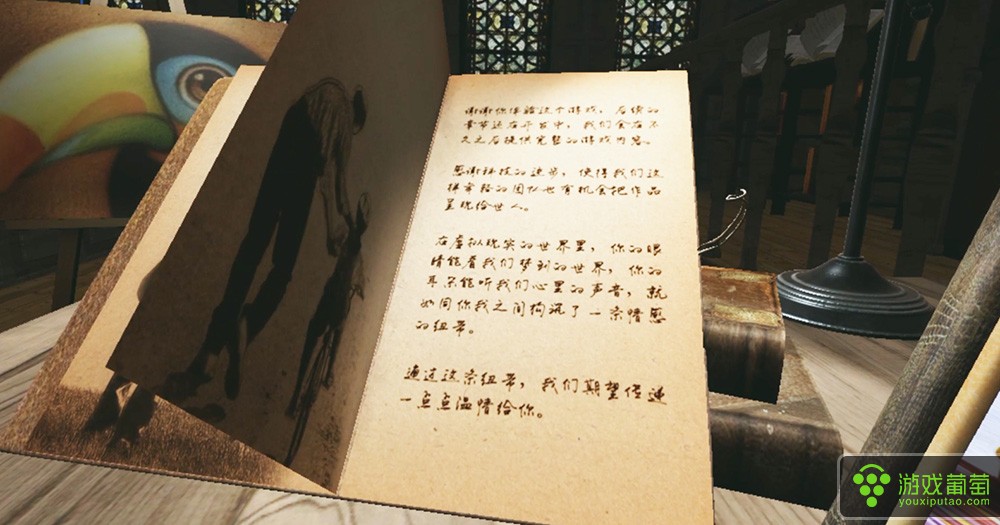 谢谢你体验这个游戏，后续的
章节还在开发中，我们会在不
久之后提供完整的游戏内容。
感谢科技的进步，使得我们这
样年轻的团队也有机会把作品
呈现给世人。
在虚拟现实的世界里，你的眼
睛能看我们梦到的世界，你的
耳朵能听我们心里的声音，就
如同你我之间构筑了一条情感
的纽带。
通过这条纽带，我们期望传递
一点点温情给你。
游戏葡萄
youxiputao.com